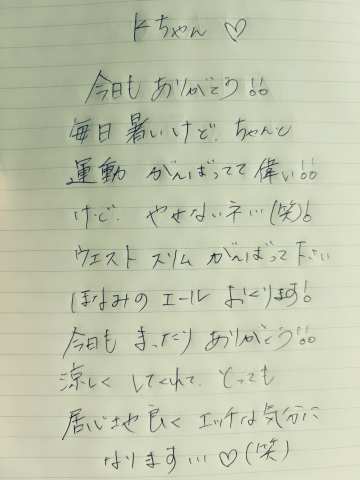 Kちゃん ♡
今日も ありがとう!!
毎日 暑いけど、ちゃんと
運動 がんばってて 偉い!!
けど、やせないネ…(笑)!
ウエスト スリム がんばって下さい
ほなみの エール おくります!
今日も まったり ありがとう!!
涼しく してくれて、とっても
居心地良く エッチな気分に
なります…♡(笑)